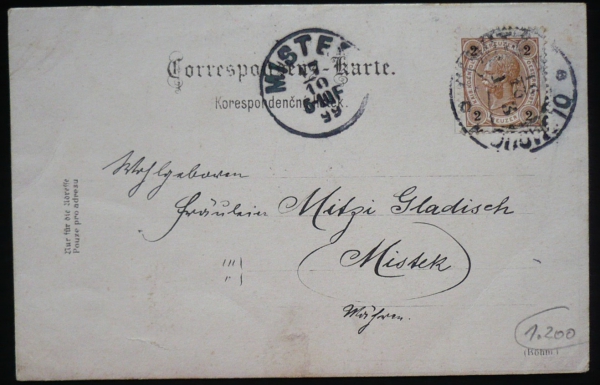 Correspondenz-Karte.
Korespondenční lístek.
MISTEK
17
10
99
2 2
Wohlgeboren
Fräulein Mitzi Gladisch
Mistek
Mähren.
Nur für die Adresse
Pouze pro adresu
1.200
(Böhm.)